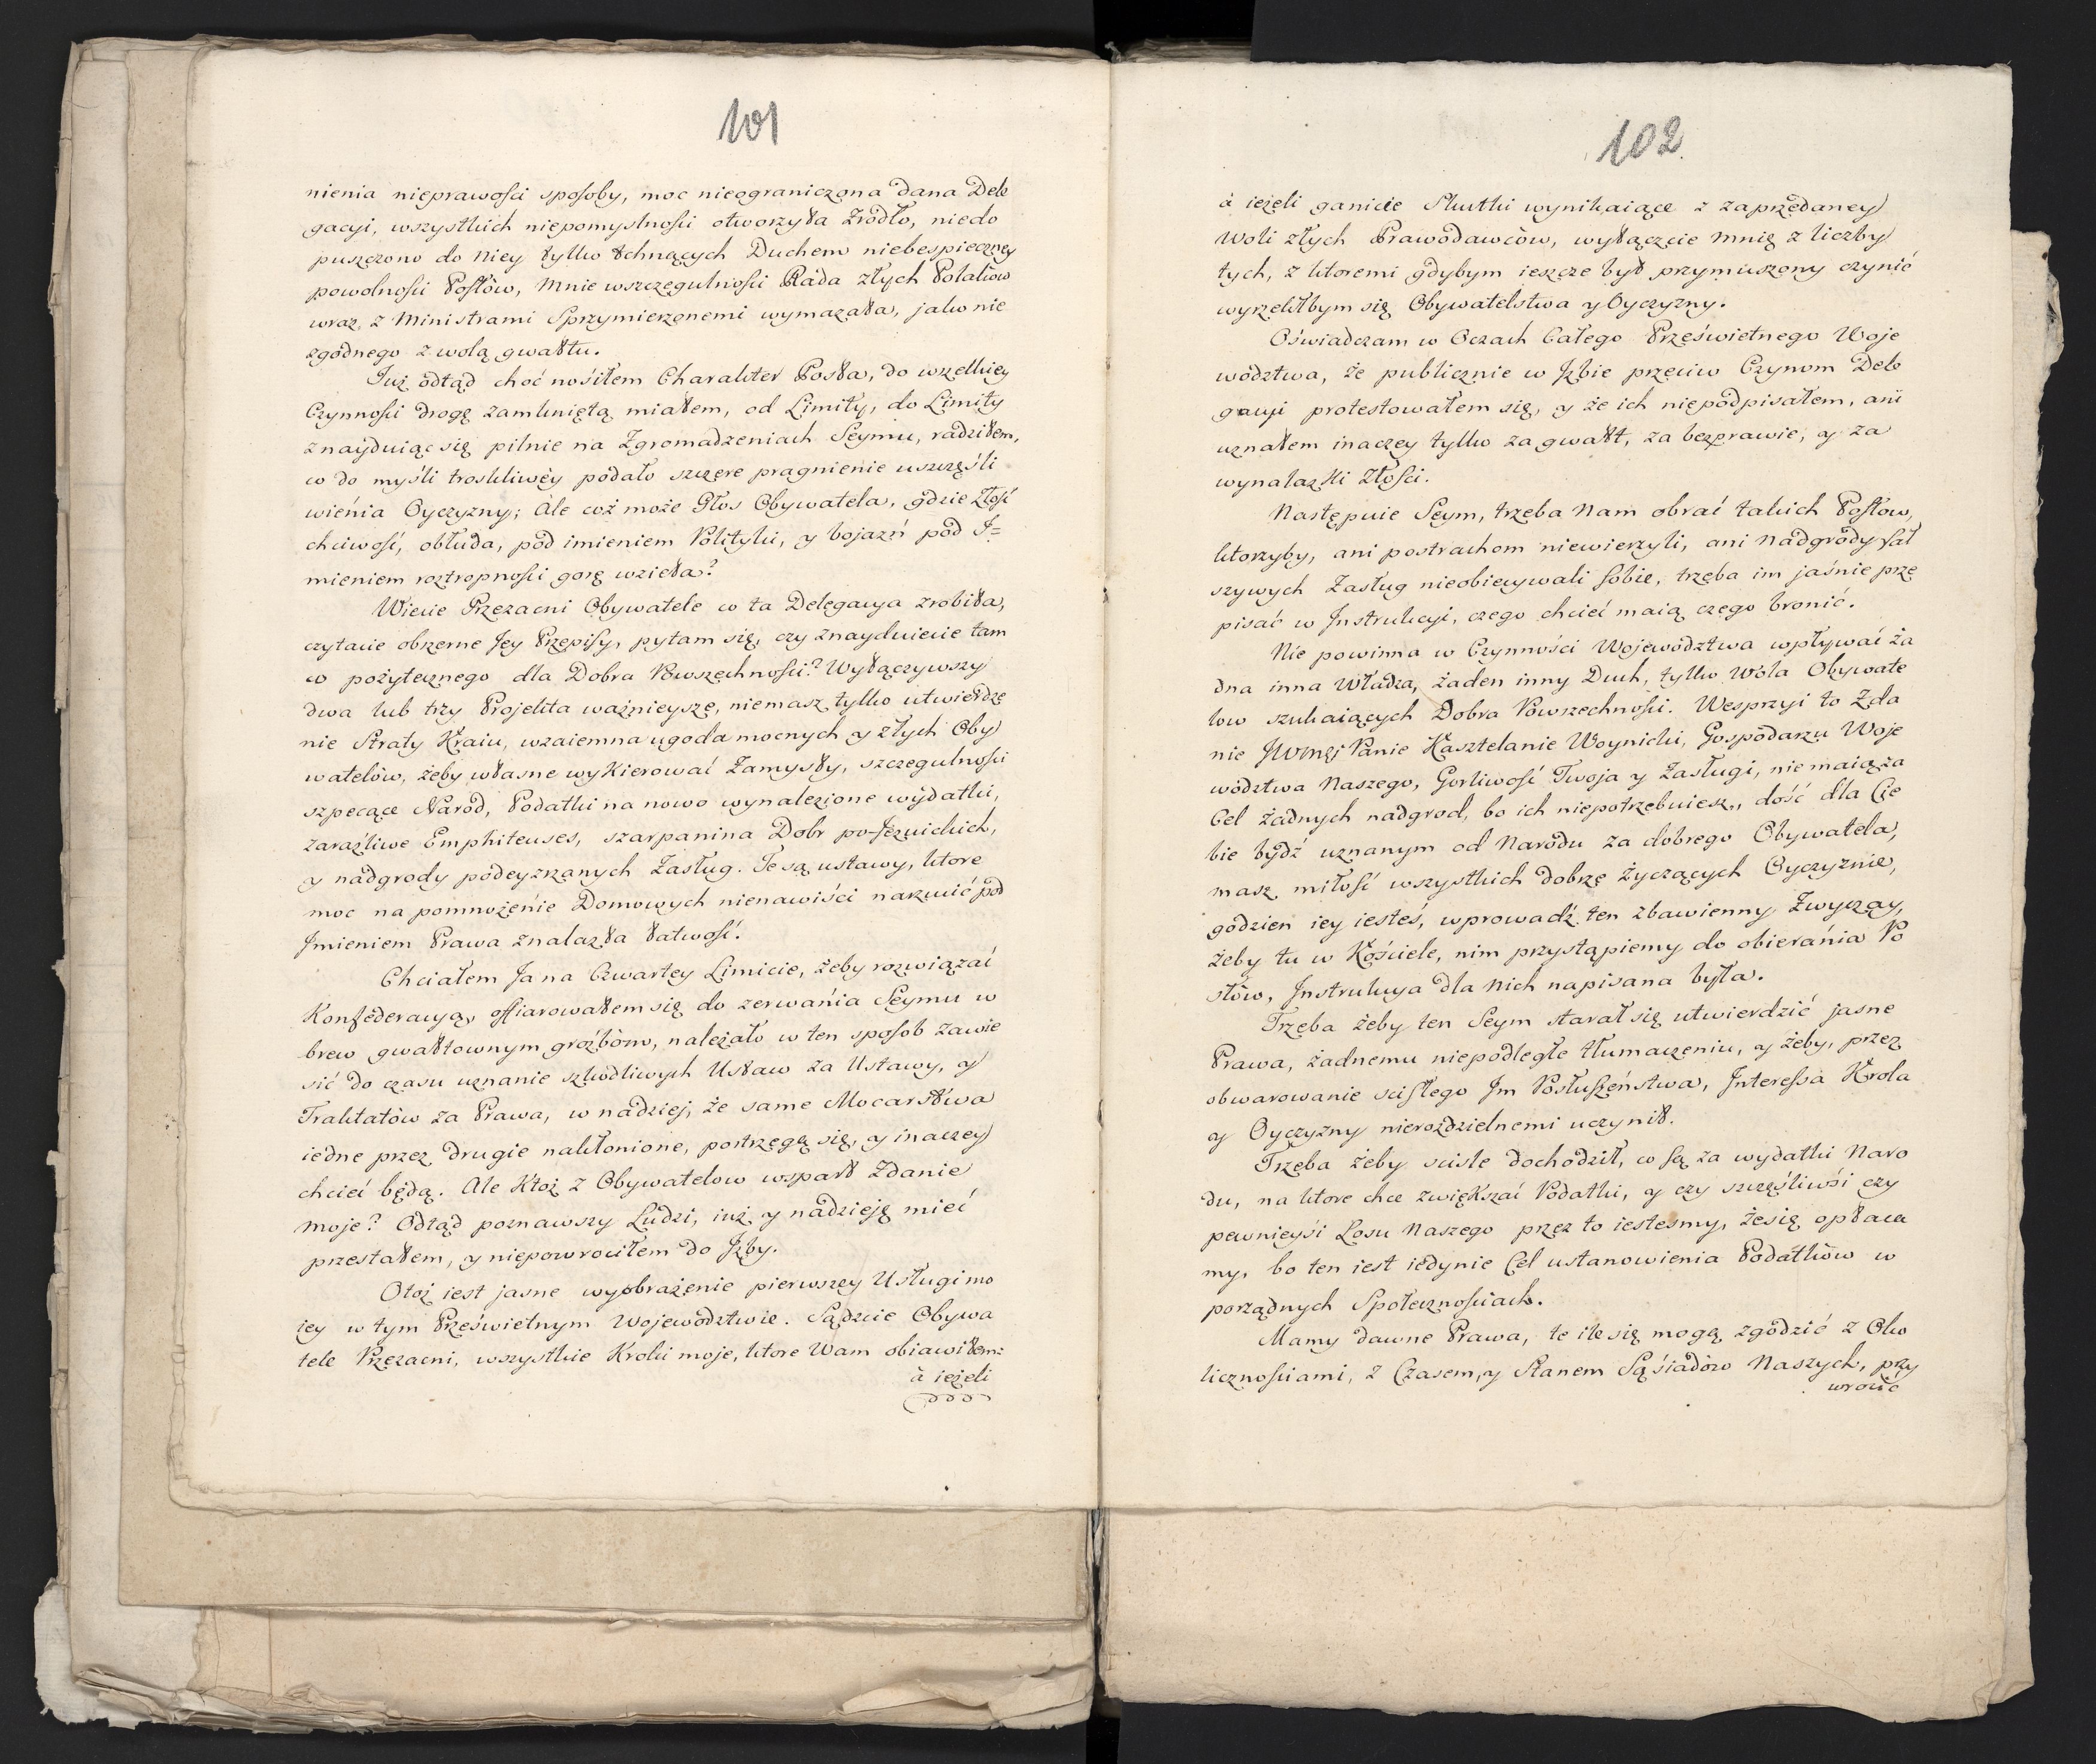 101
nienia nieprawości sposoby, moc nieograniczona dana Dele
gacyi, wszystkich niepomyslności otworzyła źrodło, niedo
puszczono do niey tylko tchnących Duchem niebespieczney
powolności Posłów, mnie wszczegulności Rada złych Polaków
wraz z Ministrami Sprzymierzonemi wymazała, jako nie
zgodnego z wolą gwałtu.
Już odtąd choć nosiłem Charakter Posła, do wszelkiey
Czynności drogę zamkniętą miałem, od Limity, do Limity
znayduiąc się pilnie na Zgromadzeniach Seymu, radziłem,
co do myśli troskliwéy podało szczere pragnienie uszczęśli
wienia Oyczyzny; Ale coż może Głos Obywatela, gdzie Złość
chciwość, obłuda, pod imieniem Polityki, y bojazń pod I=
mieniem roztropności gorę wzieła?
Wiecie Przezacni Obywatele co ta Delegacya zrobiła,
czytacie obszerne Jey Przepisy, pytam się, czy znayduiecie tam
co pożytecznego dla Dobra Powszechności? Wyłączywszy
dwa lub trzy Projekta ważnieysze, niemasz tylko utwierdze
nie Straty Kraiu, wzaiemna ugoda mocnych y złych Oby
watelów, żeby własne wykierować Zamysły, szczegulności
szpecące Narod, Podatki na nowo wynalezione wydatki,
zaraźliwe Emphiteuses, szarpanina Dobr po-Jezuickich,
y nadgrody podeyzrzanych Zasług. Te są ustawy, ktore
moc na pomnożenie Domowych nienawiści narzucić pod
Jmieniem Prawa znalazła łatwość.
Chciałem Ja na Czwartey Limicie, żeby rozwiązać
Konfederacyą, offiarowałem się do zerwania Seymu w
brew gwałtownym groźbóm, należało w ten sposob zawie
sić do czasu uznanie szkodliwych Ustaw za Ustawy, y
Traktatów za Prawa, w nadziej, że same Mocarstwa
iedne przez drugie nakłonione, postrzegą się, y inaczey
chcieć będą. Ale Ktoż z Obywatelow wsparł Zdanie
moje? Odtąd poznawszy Ludzi, iuż y nadzieję mieć
przestałem, y niepowrociłem do Jzby.
Otoż iest jasne wyobrażenie pierwszey Usługi mo
iey w tym Prześwietnym Wojewodztwie. Sądzcie Obywa
tele Przezacni, wszystkie Kroki moje, ktore Wam obiawiłem:
à ieżeli
102
à ieżeli ganicie Skutki wynikaiące z zaprzedaney
woli złych Prawodawców, wyłączcie mnię z liczby
tych, z ktoremi gdybym ieszcze był przymuszony czynić
wyrzekłbym się Obywatelstwa y Oyczyzny.
Oświadczam w Oczach Całego Prześwietnego Woje
wodztwa, że publicznie w Jzbie przeciw Czynom Dele
gacyi protestowałem się, y że ich niepodpisałem, ani
uznałem inaczey tylko za gwałt, za bezprawie, y za
wynalazki złości.
Następuie Seym, trzeba Nam obrać takich Posłow,
ktorzyby, ani postrachom niewierzyli, ani nadgrody fał
szywych Zasług nieobiecywali sobie, trzeba im jaśnie prze
pisać w Jnstrukcyi, czego chcieć maią czego bronić.
Nie powinna w Czynności Wojewodztwa wpływać ża
dna inna Władza, żaden inny Duch, tylko Wola Obywate
low szukaiących Dobra Powszechności. Wesprzyi to Zda
nie JWMęi Panie Kasztelanie Woynicki, Gospodarzu Woje
wodztwa Naszego, Gorliwość Twoja y Zasługi, nie maią za
Cel żadnych nadgrod, bo ich niepotrzebuiesz, dość dla Cie
bie bydź uznanym od Narodu za dobrego Obywatela,
masz miłość wszystkich dobrze Życzących Oyczyznie,
godzien iey iesteś, wprowadź ten zbawienny Zwyczay,
żeby tu w Kościele, nim przystąpiemy do obierania Po
słów, Jnstrukcya dla nich napisana była.
Trzeba żeby ten Seym starał się utwierdzić jasne
Prawa, żadnemu niepodległe tłumaczeniu, y żeby, przez
obwarowanie scisłego Jm Posłuszeństwa, Jnteressa Krola
y Oyczyzny nierozdzielnemi uczynił.
Trzeba żeby sciśle dochodził, co są za wydatki Naro
du, na ktore chce zwiększać Podatki, y czy szczęśliwśi czy
pewnieysi Losu Naszego przez to iestesmy, że się opłaca
my, bo ten iest iedynie Cel ustanowienia Podatków w
porządnych Społecznościach.
Mamy dawne Prawa, te ile się mogą zgodzić z Oko
licznościami, z Czasem, y Stanem Sąsiadow Naszych, przy
wrocić